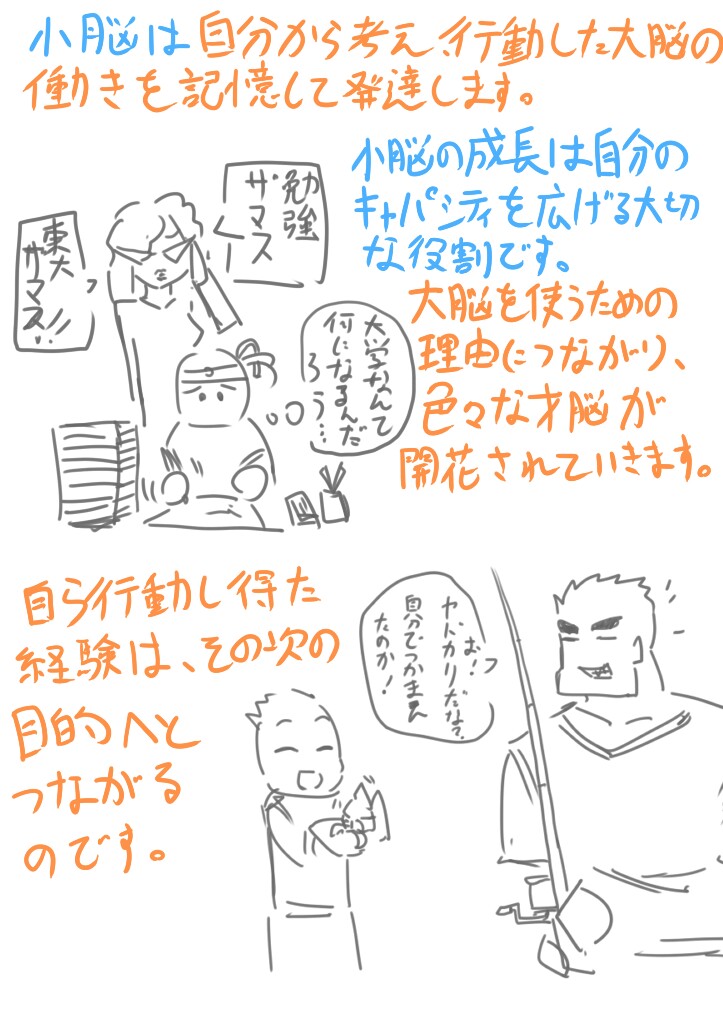 小脳は自分から考え、行動した大脳の
働きを記憶して発達します。
小脳の成長は自分の
キャパシティを広げる大切
な役割です。
勉強
ザマス
くー
東大
ザマス!!
っ
大脳を使うための
理由につながり、
色々な才脳が
開花されていきます。
大学なんて
何になるんだ
ろう…
自ら行動し得た
経験は、その次の
目的へと
つながる
のです。
お!
ヤドカリだな?
自分でつかまえ
たのか!